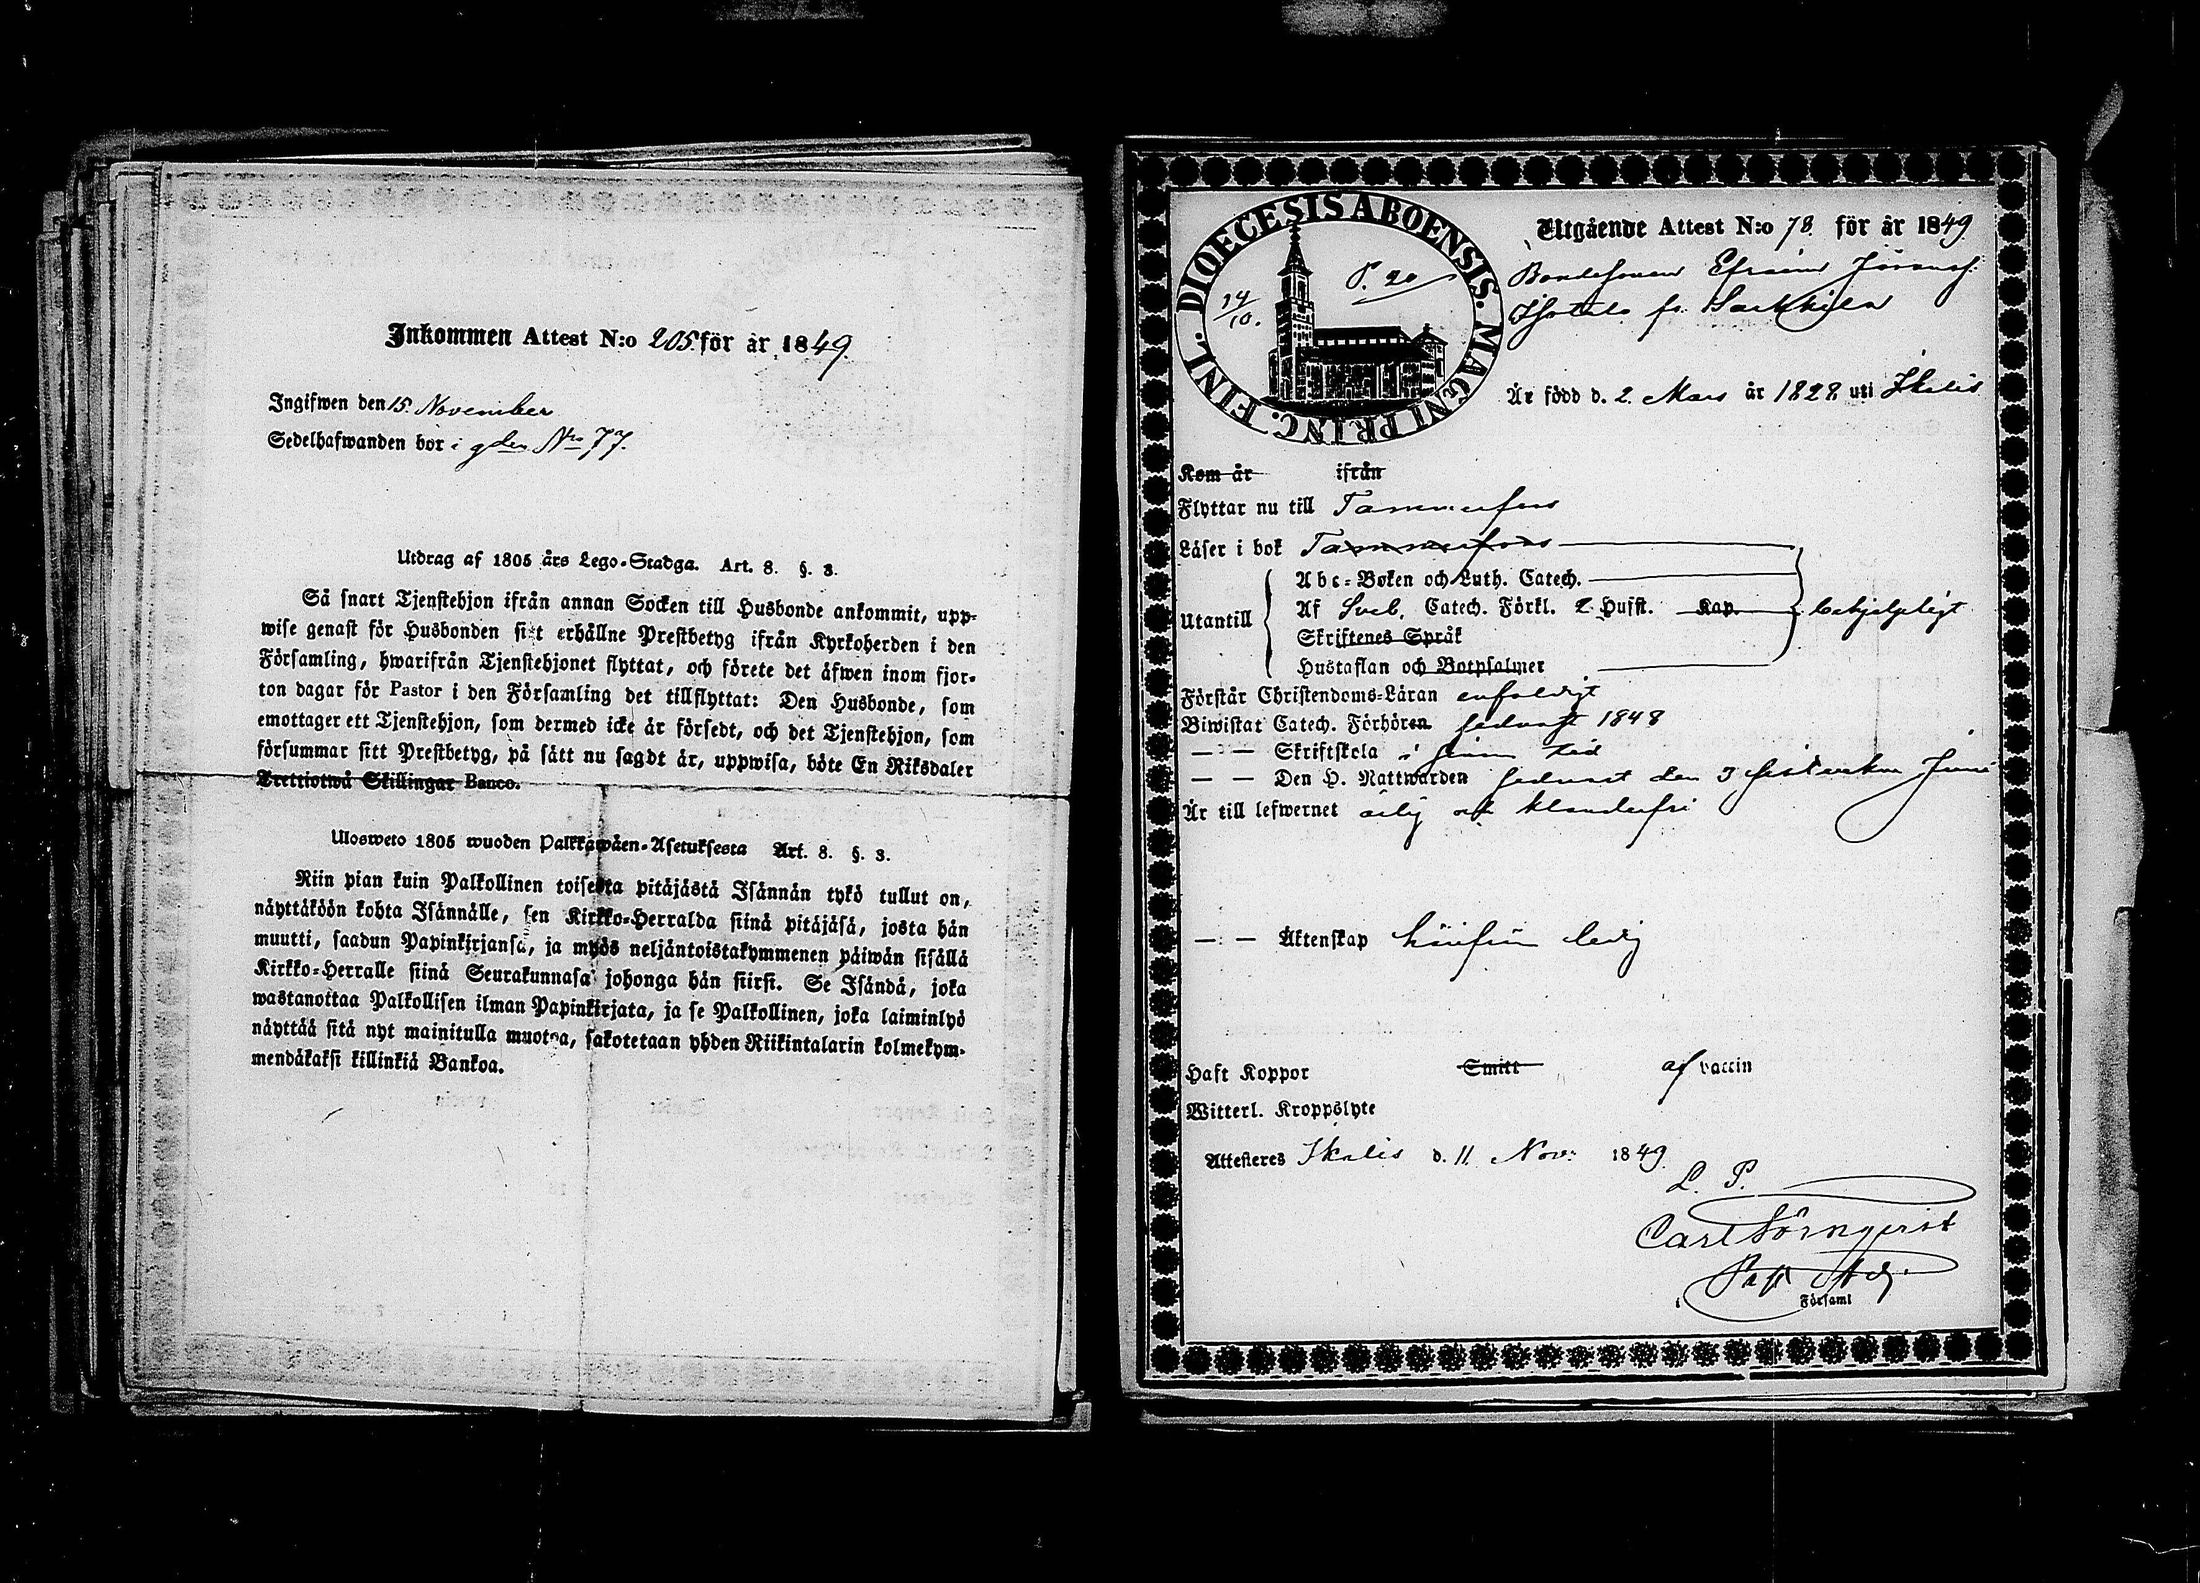 Inkommen Attest N:o 205 för år 1849.
Ingifwen den 15. November
Sedelhafwanden bor i gden Nro 77.
Utdrag af 1805 års Lego-Stadga. Art. 8. §. 3.
Så snart Tjenstehjon ifrån annan Socken till Husbonde ankommit, upp-
wise genast för Husbonden sitt erhållne Prestbetyg ifrån Kyrkoherden i den
Församling, hwarifrån Tjenstehjonet flyttat, och förete det äfwen inom fjor-
ton dagar för Pastor i den Församling det tillflyttat: Den Husbonde, som
emottager ett Tjenstehjon, som dermed icke är försedt, och det Tjenstehjon, som
försummar sitt Prestbetyg, på sätt nu sagdt är, uppwisa, böte En Riksdaler
Trettiotwå Skillingar Banco.
Ulosweto 1805 wuoden Palkkawäen-Asetuksesta Art. 8. §. 3.
Niin pian kuin Palkollinen toisesta pitäjästä Isännän tykö tullut on,
näyttäköön kohta Isännälle, sen Kirkko-Herralda siinä pitäjäsä, josta hän
muutti, saadun Papinkirjansa, ja myös neljäntoistakymmenen päiwän sisällä
Kirkko-Herralle siinä Seurakunnasa johonga hän siirsi. Se Isändä, joka
wastanottaa Palkollisen ilman Papinkirjata, ja se Palkollinen, joka laiminlyö
näyttää sitä nyt mainitulla muotoa, sakotetaan yhden Riikintalarin kolmekym-
mendäkaksi killinkiä Bankoa.
DIOECESIS ABOENSIS. MAGNI PRINC. FINL.
P. 20
14/10.
Utgående Attest N:o 78. för år 1849.
Bondesonen Efraim Jöransf.
fr. Sarkkila
Är född d. 2. Mars år 1828 uti Ikalis
Kom år ifrån
Flyttar nu till Tammerfors
Läser i bok Tammerfors
Abc-Boken och Luth. Catech.
Utantill
Af Sveb. Catech. Förkl. 2 Hufst. Kap. behjelpligt
Skriftenes Språk
Hustaflan och Botpsalmer
Förstår Christendoms-Läran enfaldigt
Biwistat Catech. Förhören sednast 1848
— — Skriftskola i sinom tid
— — Den H. Nattwarden sednast den 3 Juni
Är till lefwernet ärlig och klanderfri
— : — Äktenskap hinfrin ledig
Haft Koppor Smitt af vaccin
Witterl. Kroppslyte
Attesteres Ikalis d. 11. Nov: 1849.
L. P.
Carl Törnqvist
Past. Adj.
i Församl